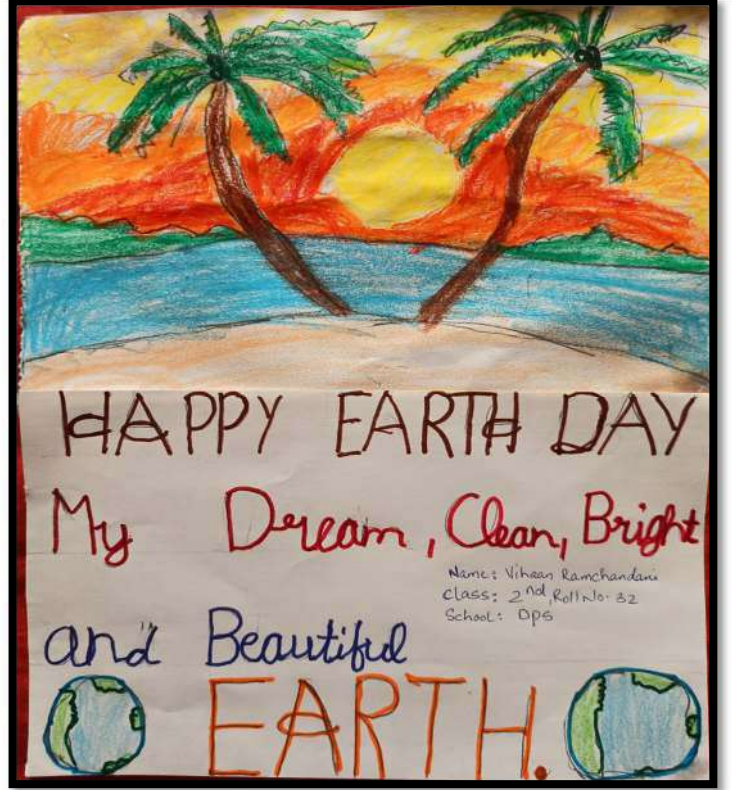 HAPPY EARTH DAY
My Dream, Clean, Bright
Name: Vihaan Ramchandani
Class: 2nd, Roll No. 32
School: DPS
and Beautiful
EARTH.